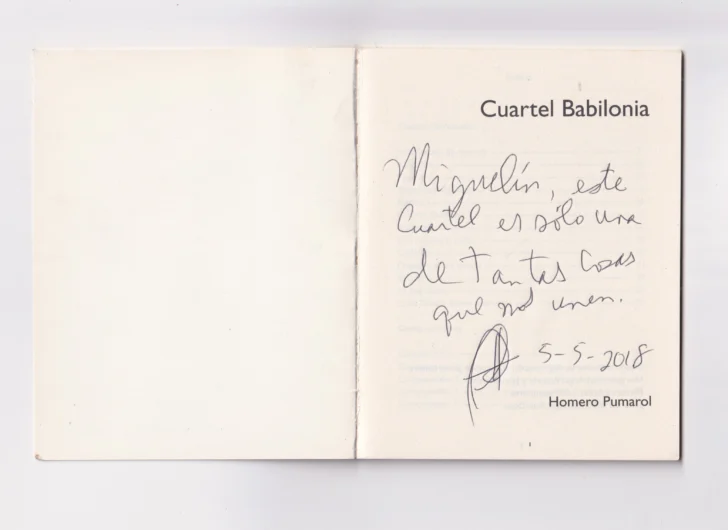 Cuartel Babilonia
Miguelín, este
Cuartel es sólo una
de tantas cosas
que nos unen.
5-5-2018
Homero Pumarol